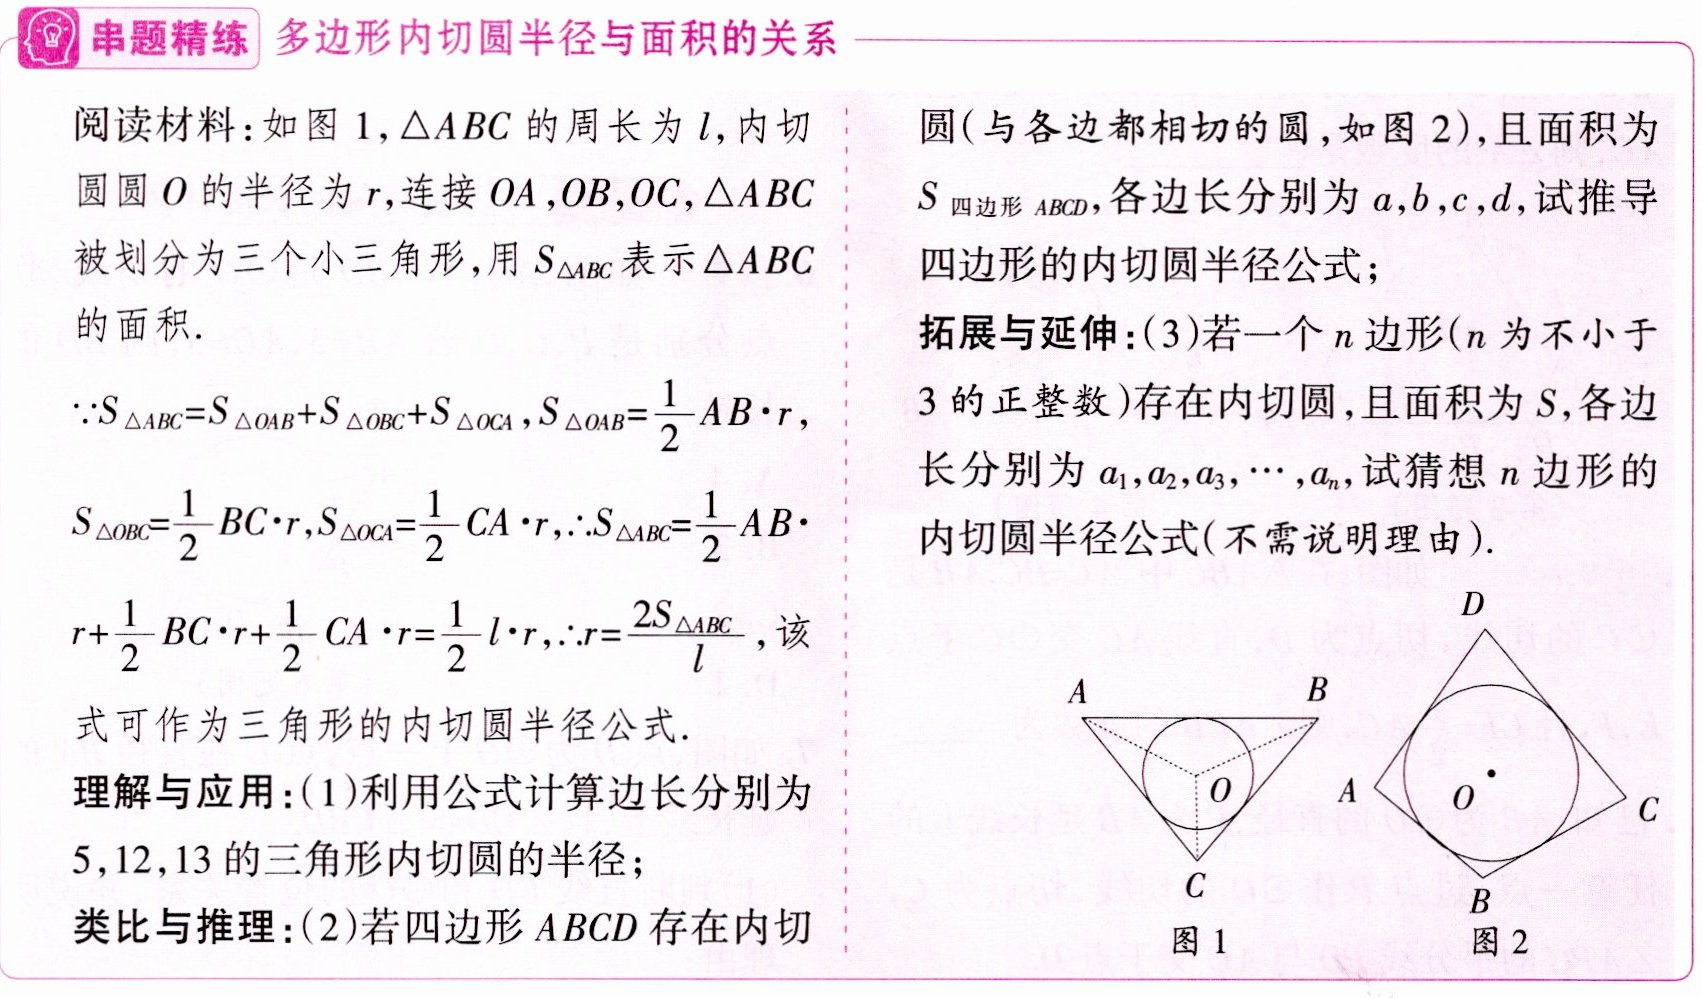 串题精练 多边形内切圆半径与面积的关系
阅读材料:如图 1,△ABC 的周长为 l,内切
圆圆 O 的半径为 r,连接 OA,OB,OC,△ABC
被划分为三个小三角形,用 S△ABC 表示△ABC
的面积.
∵S△ABC=S△OAB+S△OBC+S△OCA,S△OAB=1/2 AB·r,
S△OBC=1/2 BC·r,S△OCA=1/2 CA·r,∴S△ABC=1/2 AB·
r+1/2 BC·r+1/2 CA·r=1/2 l·r,∴r=2S△ABC/l,该
式可作为三角形的内切圆半径公式.
理解与应用:(1)利用公式计算边长分别为
5,12,13 的三角形内切圆的半径;
类比与推理:(2)若四边形 ABCD 存在内切
圆(与各边都相切的圆,如图 2),且面积为
S四边形 ABCD,各边长分别为 a,b,c,d,试推导
四边形的内切圆半径公式;
拓展与延伸:(3)若一个 n 边形(n 为不小于
3 的正整数)存在内切圆,且面积为 S,各边
长分别为 a₁,a₂,a₃,…,aₙ,试猜想 n 边形的
内切圆半径公式(不需说明理由).
A
B
O
C
图 1
D
A
O
C
B
图 2